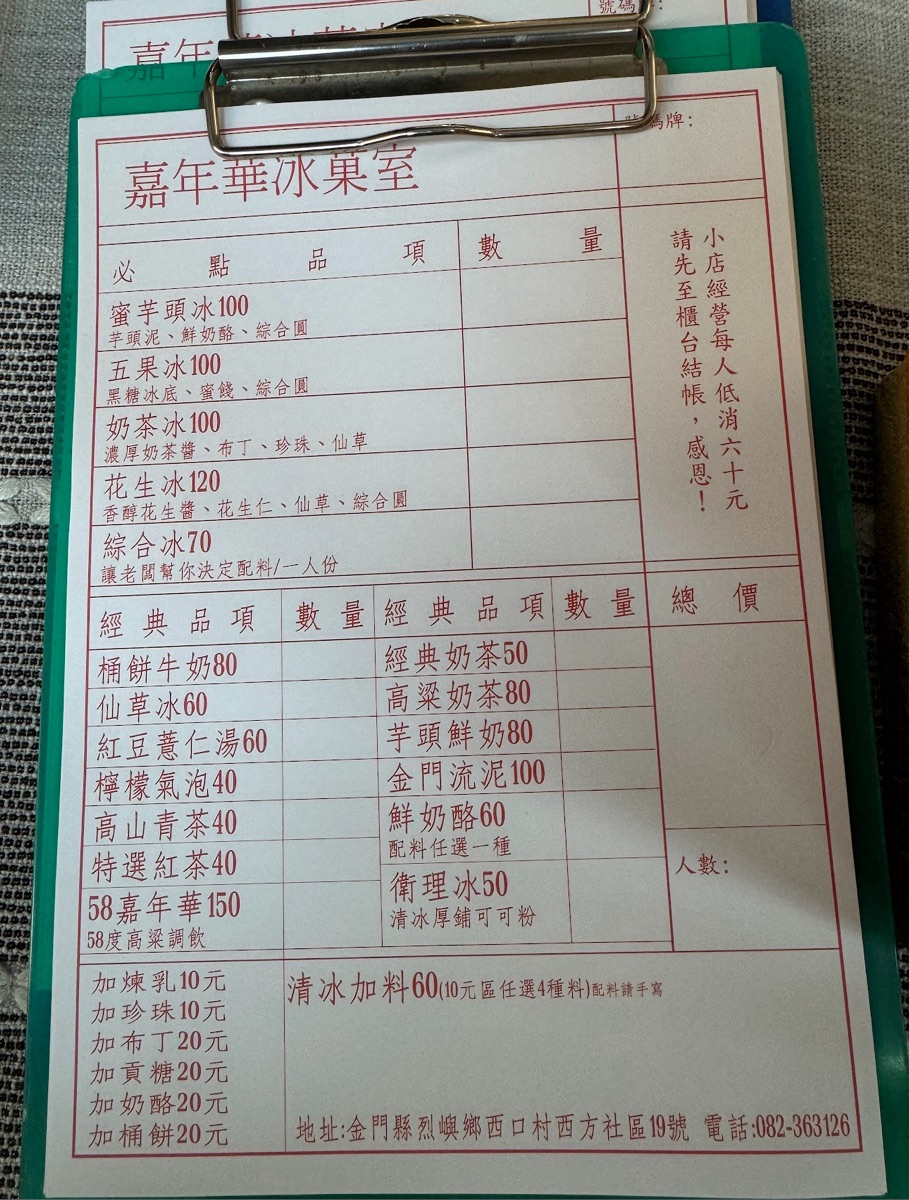 號碼:
嘉年
號碼牌:
嘉年華冰菓室
必點品項 數量
蜜芋頭冰100
芋頭泥、鮮奶酪、綜合圓
五果冰100
黑糖冰底、蜜餞、綜合圓
奶茶冰100
濃厚奶茶醬、布丁、珍珠、仙草
花生冰120
香醇花生醬、花生仁、仙草、綜合圓
綜合冰70
讓老闆幫你決定配料/一人份
小店經營每人低消六十元
請先至櫃台結帳，感恩！
經典品項 數量 經典品項 數量 總價
桶餅牛奶80
仙草冰60
紅豆薏仁湯60
檸檬氣泡40
高山青茶40
特選紅茶40
58嘉年華150
58度高粱調飲
經典奶茶50
高粱奶茶80
芋頭鮮奶80
金門流泥100
鮮奶酪60
配料任選一種
衛理冰50
清冰厚鋪可可粉
人數:
加煉乳10元
加珍珠10元
加布丁20元
加貢糖20元
加奶酪20元
加桶餅20元
清冰加料60(10元區任選4種料)配料請手寫
地址:金門縣烈嶼鄉西口村西方社區19號 電話:082-363126